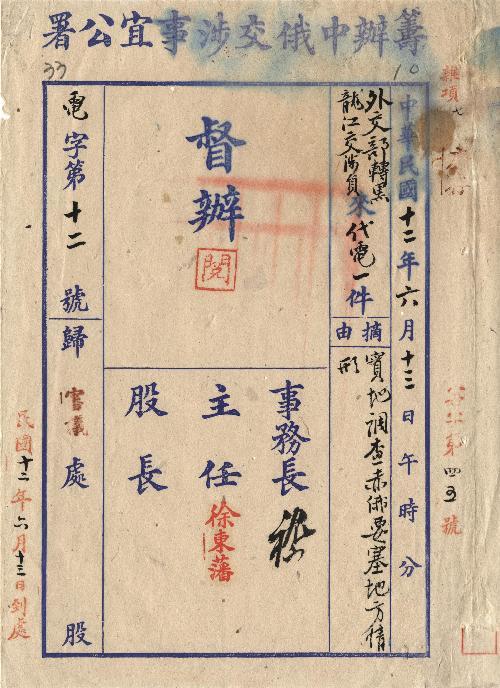 籌辦中俄交涉事宜公署
10
33
雜項
第 四五 號
中華民國十二年六月十三日午時分
外交部轉黑
龍江交涉員來代電一件
摘由
實地調查赤俄要塞地方情
形
督辦
閱
事務長
主任 徐東藩
股長
電字第十二號歸審議處股
民國十二年六月十三日到處